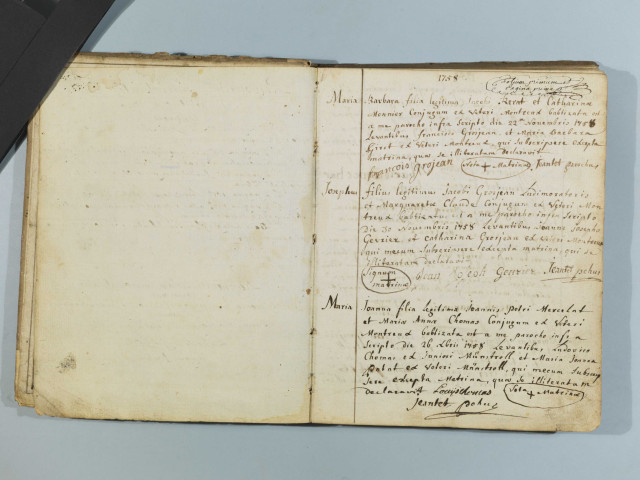 1758
folium primum et
pagina prima
Maria Barbara filia legitima Jacobi et Catharinæ
Monnier Conjugum ex Veteri Montreud babtizata est
a me parocho infra Scripto die 22a Novembris 1758
Levantibus francisco Grosjean et Maria Barbara
Girot ex Veteri Montreud, qui Subscripsere excepta
matrina, quæ se illiteratam declaravit
francois grosjean Nota + Matrinæ Jeantet parochus
Josephus filius legitimus Jacobi Grosjean Ludimoderatoris
et Margaretæ Claide Conjugum ex Veteri Mon
treud babtizatus est a me parocho infra Scripto
die 30 Novembris 1758 Levantibus Joanne Josepho
Gevrier et Catharina Grosjean ex Veteri Montreud
qui mecum Subscripsere excepta matrina, qui se
illiteratam declaravit
Signum + matrinæ Jean Joseph Jeantet pchus
Maria Joanna filia legitima Joannis Petri Marcelat
et Mariæ Annæ Chomas Conjugum ex Veteri
Montreud babtizata est a me parocho infra
Scripto die 26 Xbris 1758 Levantibus Ludovico
Chomas ex Juniori Münstroll et Maria Joanna
ex Veteri Münstroll, qui mecum Subscrip
sere excepta Matrina, quæ se illiteratam
declaravit Louis chomas Nota + Matrinæ
Jeantet pchus